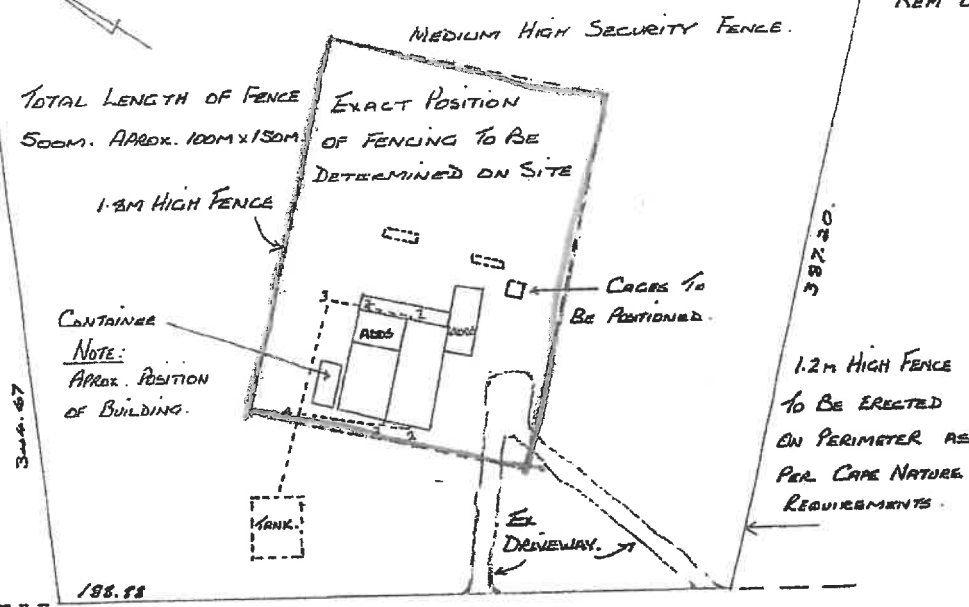 REM
MEDIUM HIGH SECURITY FENCE.
TOTAL LENGTH OF FENCE
500M. APROX. 100M X 150M.
EXACT POSITION
OF FENCING TO BE
DETERMINED ON SITE
1.8M HIGH FENCE
CAGES TO
BE POSITIONED.
387.20.
CONTAINER
NOTE:
APROX. POSITION
OF BUILDING.
3
2
2
ADDS
ADDS
4
3
2
1.2M HIGH FENCE
TO BE ERECTED
ON PERIMETER AS
PER CAPE NATURE
REQUIREMENTS.
TANK.
EX
DRIVEWAY.
198.88